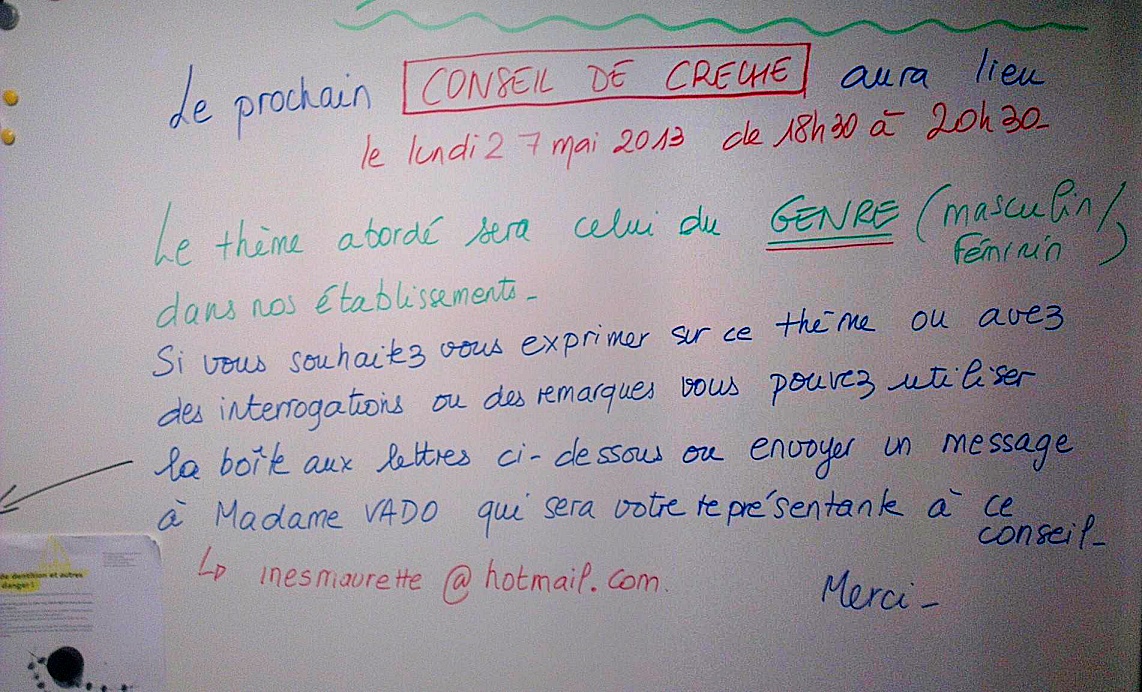 Le prochain CONSEIL DE CRECHE aura lieu
le lundi 27 mai 2013 de 18h30 à 20h30-
Le thème abordé sera celui du GENRE (masculin/
féminin)
dans nos établissements-
Si vous souhaitez vous exprimer sur ce thème ou avez
des interrogations ou des remarques vous pouvez utiliser
la boîte aux lettres ci-dessous ou envoyer un message
à Madame VADO qui sera votre représentante à ce
conseil-
↳ inesmaurette@hotmail.com.
Merci-
de dentition et autres
danger !